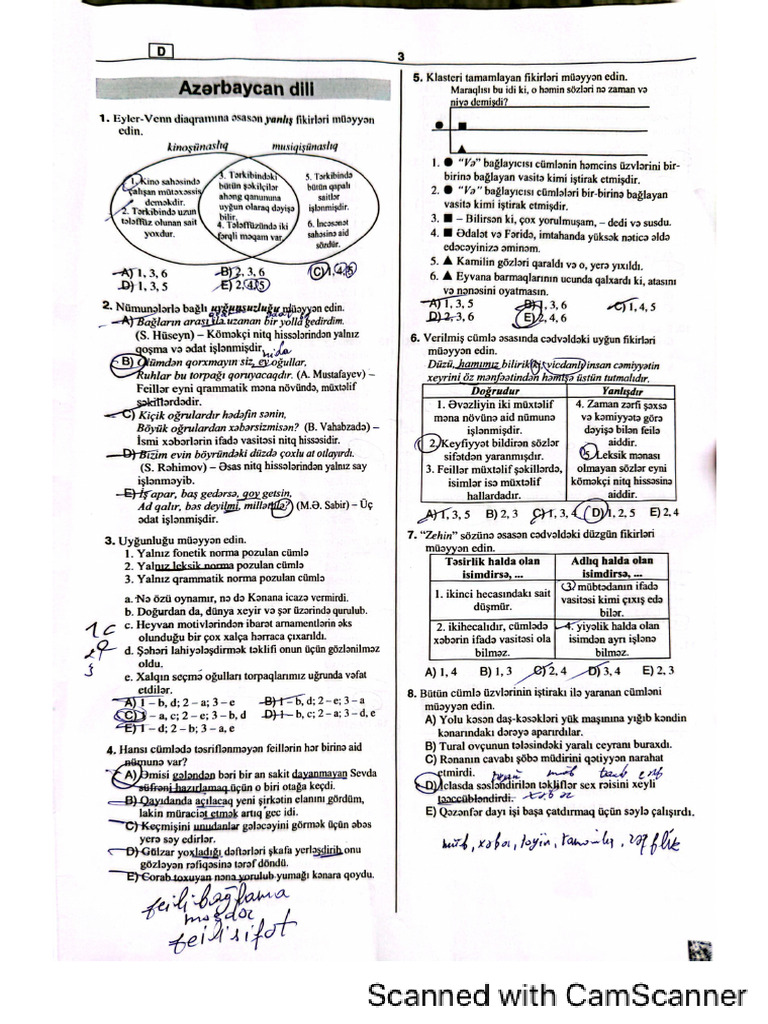 D
3
Azərbaycan dili
1. Eyler-Venn diaqramına əsasən yanlış fikirləri müəyyən
edin.
kinoşünaslıq
musiqişünaslıq
1. Kino sahəsində
çalışan mütəxəssis
deməkdir.
2. Tərkibində uzun
tələffüz olunan sait
yoxdur.
3. Tərkibindəki
bütün şəkilçilər
ahəng qanununa
uyğun olaraq dəyişə
bilir.
4. Tələffüzündə iki
fərqli məqam var.
5. Tərkibində
bütün qapalı
saitlər
işlənmişdir.
6. İncəsənət
sahəsinə aid
sözdür.
A) 1, 3, 6 B) 2, 3, 6 C) 1, 4, 6
D) 1, 3, 5 E) 2, 4, 5
2. Nümunələrlə bağlı uyğunsuzluğu müəyyən edin.
A) Bağların arası ilə uzanan bir yolla gedirdim.
(S. Hüseyn) – Köməkçi nitq hissələrindən yalnız
qoşma və ədat işlənmişdir.
nida
B) Ölümdən qorxmayın siz, ey oğullar,
Ruhlar bu torpağı qoruyacaqdır. (A. Mustafayev) –
Feillər eyni qrammatik məna növündə, müxtəlif
şəkillərdədir.
C) Kiçik oğrulardır hədəfin sənin,
Böyük oğrulardan xəbərsizmisən? (B. Vahabzadə) –
İsmi xəbərlərin ifadə vasitəsi nitq hissəsidir.
D) Bizim evin böyründəki düzdə çoxlu at otlayırdı.
(S. Rəhimov) – Əsas nitq hissələrindən yalnız say
işlənməyib.
E) İş aparar, baş gedərsə, qoy getsin,
Ad qalır, bəs deyilmi, millətilə? (M.Ə. Sabir) – Üç
ədat işlənmişdir.
3. Uyğunluğu müəyyən edin.
1. Yalnız fonetik norma pozulan cümlə
2. Yalnız leksik norma pozulan cümlə
3. Yalnız qrammatik norma pozulan cümlə
a. Nə özü oynamır, nə də Kənana icazə vermirdi.
b. Doğurdan da, dünya xeyir və şər üzərində qurulub.
c. Heyvan motivlərindən ibarət arnamentlərin əks
olunduğu bir çox xalça hərraca çıxarıldı.
d. Şəhəri lahiyələşdirmək təklifi onun üçün gözlənilməz
oldu.
e. Xalqın seçmə oğulları torpaqlarımız uğrunda vəfat
etdilər.
1c
3
A) 1 – b, d; 2 – a; 3 – e B) 1 – b, d; 2 – e; 3 – a
C) 1 – a, c; 2 – e; 3 – b, d D) 1 – b, c; 2 – a; 3 – d, e
E) 1 – d; 2 – b; 3 – a, e
4. Hansı cümlədə təsriflənməyən feillərin hər birinə aid
nümunə var?
A) Əmisi gələndən bəri bir an sakit dayanmayan Sevda
süfrəni hazırlamaq üçün o biri otağa keçdi.
B) Qayıdanda açılacaq yeni şirkətin elanını gördüm,
lakin müraciət etmək artıq gec idi.
C) Keçmişini unudanlar gələcəyini görmək üçün əbəs
yerə səy edirlər.
D) Gülzar yoxladığı dəftərləri şkafa yerləşdirib onu
gözləyən rəfiqəsinə tərəf döndü.
E) Corab toxuyan nənə yorulub yumağı kənara qoydu.
feili bağlama
məsdər
feili sifət
5. Klasteri tamamlayan fikirləri müəyyən edin.
Maraqlısı bu idi ki, o həmin sözləri nə zaman və
niyə demişdi?
1. ● “Və” bağlayıcısı cümlənin həmcins üzvlərini bir-
birinə bağlayan vasitə kimi iştirak etmişdir.
2. ● “Və” bağlayıcısı cümlələri bir-birinə bağlayan
vasitə kimi iştirak etmişdir.
3. ■ – Bilirsən ki, çox yorulmuşam, – dedi və susdu.
4. ■ Ədalət və Fəridə, imtahanda yüksək nəticə əldə
edəcəyinizə əminəm.
5. ▲ Kamilin gözləri qaraldı və o, yerə yıxıldı.
6. ▲ Eyvana barmaqlarının ucunda qalxardı ki, atasını
və nənəsini oyatmasın.
A) 1, 3, 5 B) 1, 3, 6 C) 1, 4, 5
D) 2, 3, 6 E) 2, 4, 6
6. Verilmiş cümlə əsasında cədvəldəki uyğun fikirləri
müəyyən edin.
Düzü, hamımız bilirik ki, vicdanlı insan cəmiyyətin
xeyrini öz mənfəətindən həmişə üstün tutmalıdır.
Doğrudur
Yanlışdır
1. Əvəzliyin iki müxtəlif
məna növünə aid nümunə
işlənmişdir.
2. Keyfiyyət bildirən sözlər
sifətdən yaranmışdır.
3. Feillər müxtəlif şəkillərdə,
isimlər isə müxtəlif
hallardadır.
4. Zaman zərfi şəxsə
və kəmiyyətə görə
dəyişə bilən feilə
aiddir.
5. Leksik mənası
olmayan sözlər eyni
köməkçi nitq hissəsinə
aiddir.
A) 1, 3, 5 B) 2, 3 C) 1, 3, 4 D) 1, 2, 5 E) 2, 4
7. “Zehin” sözünə əsasən cədvəldəki düzgün fikirləri
müəyyən edin.
Təsirlik halda olan
isimdirsə, ...
Adlıq halda olan
isimdirsə, ...
1. ikinci hecasındakı sait
düşmür.
3. mübtədanın ifadə
vasitəsi kimi çıxış edə
bilər.
2. ikihecalıdır, cümlədə
xəbərin ifadə vasitəsi ola
bilməz.
4. yiyəlik halda olan
isimdən ayrı işlənə
bilməz.
A) 1, 4 B) 1, 3 C) 2, 4 D) 3, 4 E) 2, 3
8. Bütün cümlə üzvlərinin iştirakı ilə yaranan cümləni
müəyyən edin.
A) Yolu kəsən daş-kəsəkləri yük maşınına yığıb kəndin
kənarındakı dərəyə aparırdılar.
B) Tural ovçunun tələsindəki yaralı ceyranı buraxdı.
C) Rənanın cavabı şöbə müdirini qətiyyən narahat
etmirdi.
D) İclasda səsləndirilən təkliflər sex rəisini xeyli
təəccübləndirdi.
E) Qəzənfər dayı işi başa çatdırmaq üçün səylə çalışırdı.
Scanned with CamScanner